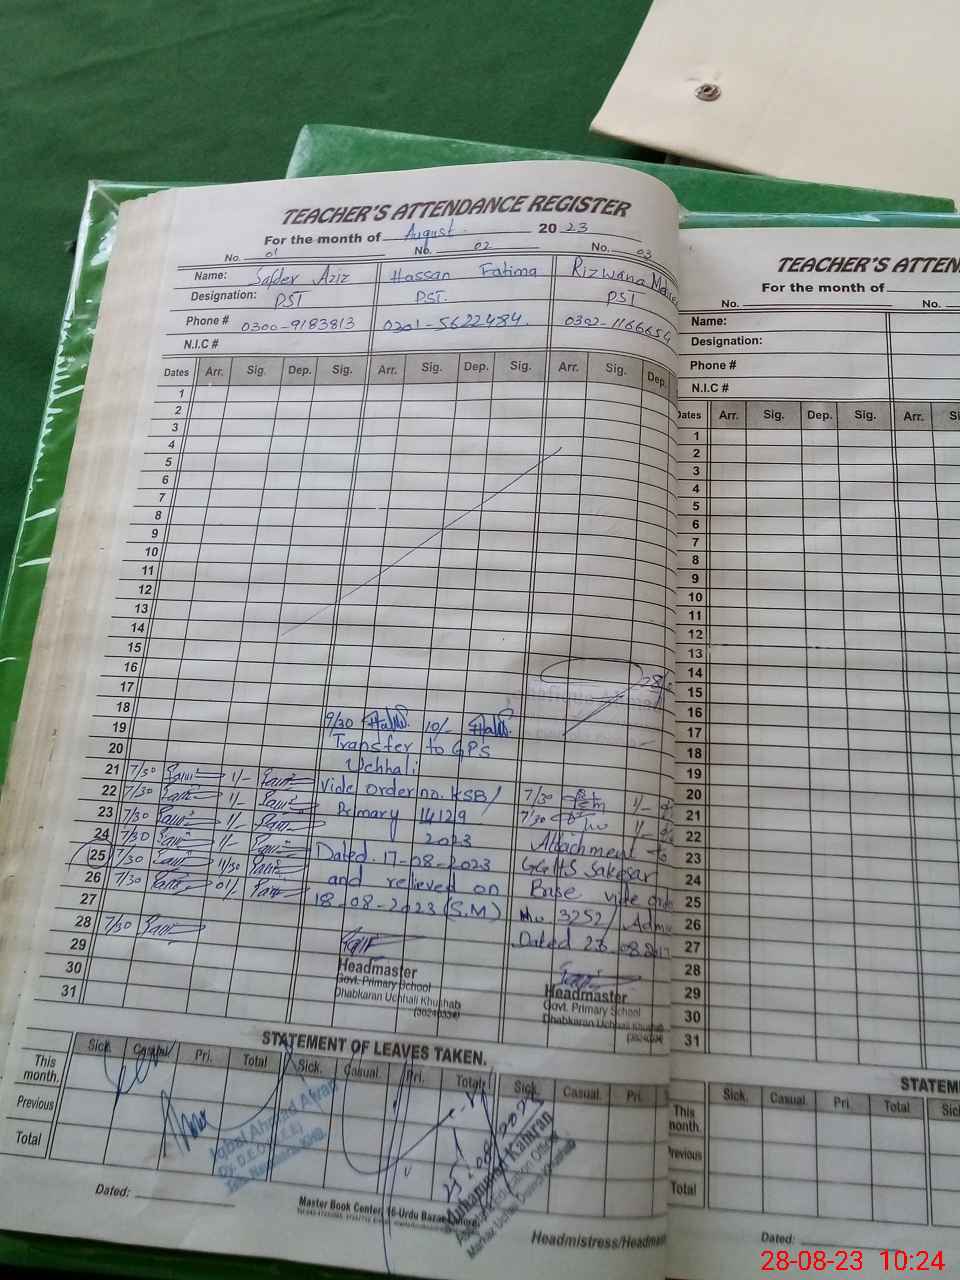 TEACHER'S ATTENDANCE REGISTER
For the month of August 2023
No. 01 No. 02 No. 03
Name: Safder Aziz Hassan Fatima Rizwana
Designation: PST PST. PST
Phone # 0300-9183813 0301-5622484. 0302-1166654
N.I.C #
Dates Arr. Sig. Dep. Sig. Arr. Sig. Dep. Sig. Arr. Sig. Dep.
1
2
3
4
5
6
7
8
9
10
11
12
13
14
15
16
17
18
19
20
21 7/30 1/-
22 7/30 1/-
23 7/30 1/-
24 7/30 1/-
25 7/30 11/30
26 7/30 01/-
27
28 7/30
29
30
31
9/30 10/-
Transfer to GPS
Uchhali
vide order no. KSB/
Primary 14129
2023
Dated. 17-08-2023
and relieved on
18-08-2023 (S.M)
Headmaster
Govt. Primary School
Dhabkaran Uchhali Khushab
7/30 1/-
7/30 1/-
Attachment to
GGHS Sakesar
Base vide
No 3252/
Dated
Headmaster
Govt. Primary School
Dhabkaran Uchhali
STATEMENT OF LEAVES TAKEN.
Sick. Casual Pri. Total Sick. Casual. Pri. Total Sick. Casual. Pri.
This month.
Previous
Total
Iqbal Ahmad
Muhammad Kamran
Dated:
Master Book Center, 16-Urdu Bazar Lahore.
Headmistress/Headmas
TEACHER'S ATTEN
For the month of
No. No.
Name:
Designation:
Phone #
N.I.C #
Dates Arr. Sig. Dep. Sig. Arr.
1
2
3
4
5
6
7
8
9
10
11
12
13
14
15
16
17
18
19
20
21
22
23
24
25
26
27
28
29
30
31
STATEM
Sick. Casual. Pri. Total
This month.
Previous
Total
Dated:
28-08-23 10:24